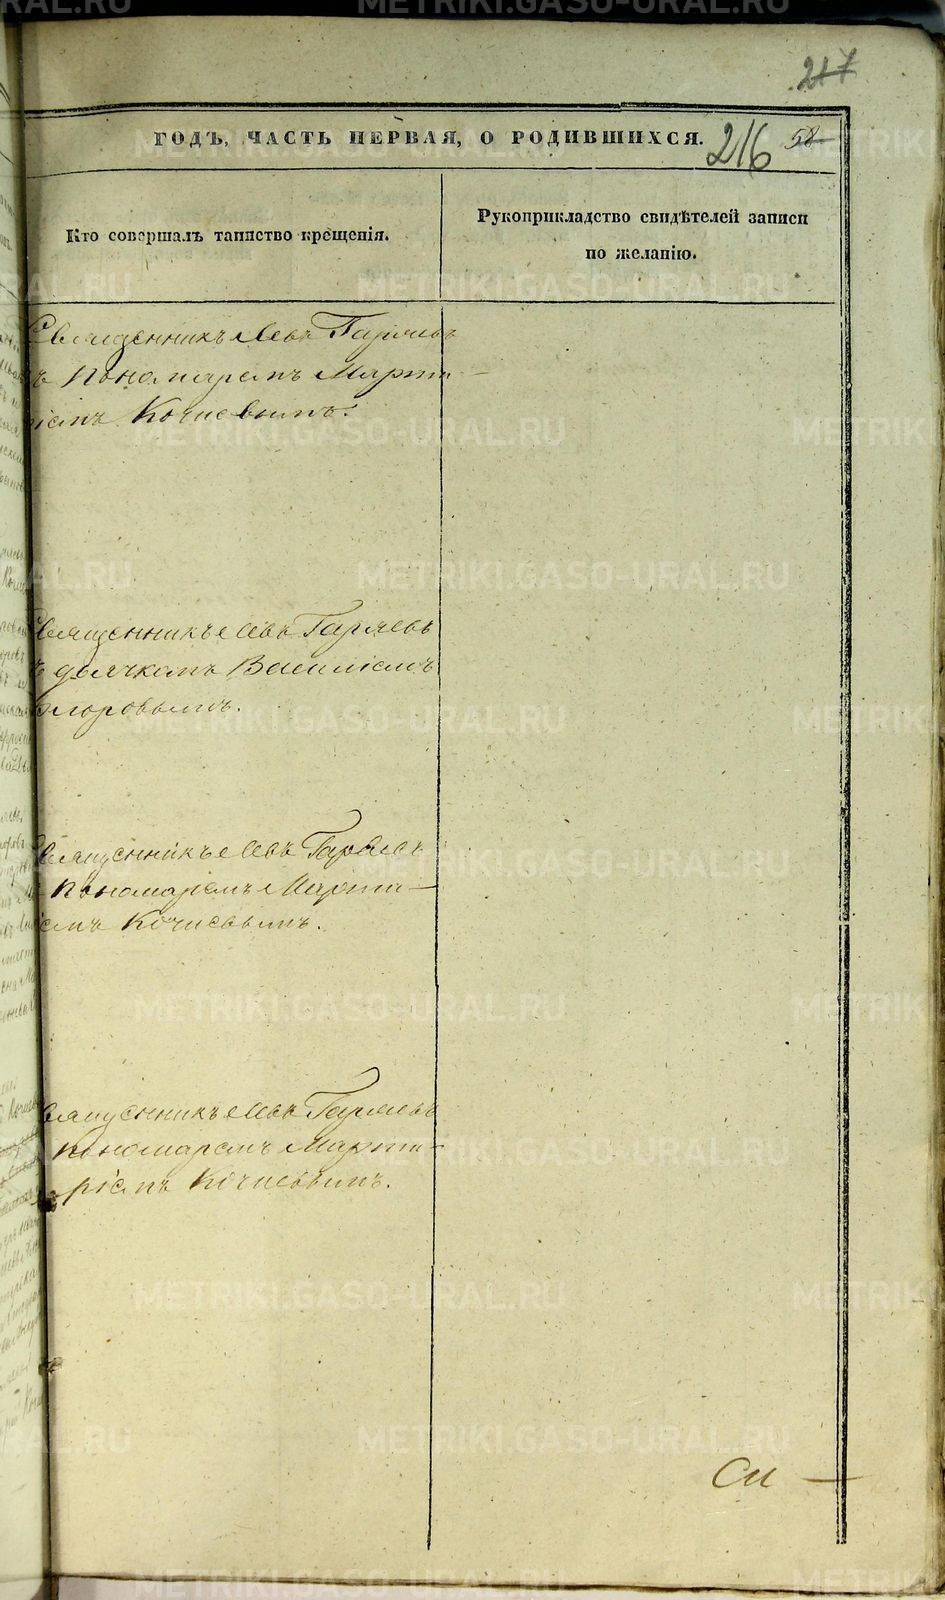 217
ГОДЪ, ЧАСТЬ ПЕРВАЯ, О РОДИВШИХСЯ.
216 58
Кто совершалъ таинство крещенія.
Рукоприкладство свидѣтелей записи
по желанію.
Священникъ Левъ Гаряевъ
съ пономаремъ Марти-
ріемъ Кочневымъ.
Священникъ Левъ Гаряевъ
съ дьячкомъ Василіемъ
Священникъ Левъ Гаряевъ
пономаремъ Марти-
ріемъ Кочневымъ.
Священникъ Левъ Гаряевъ
пономаремъ Марти-
ріемъ Кочневымъ.
Си —
METRIKI.GASO-URAL.RU